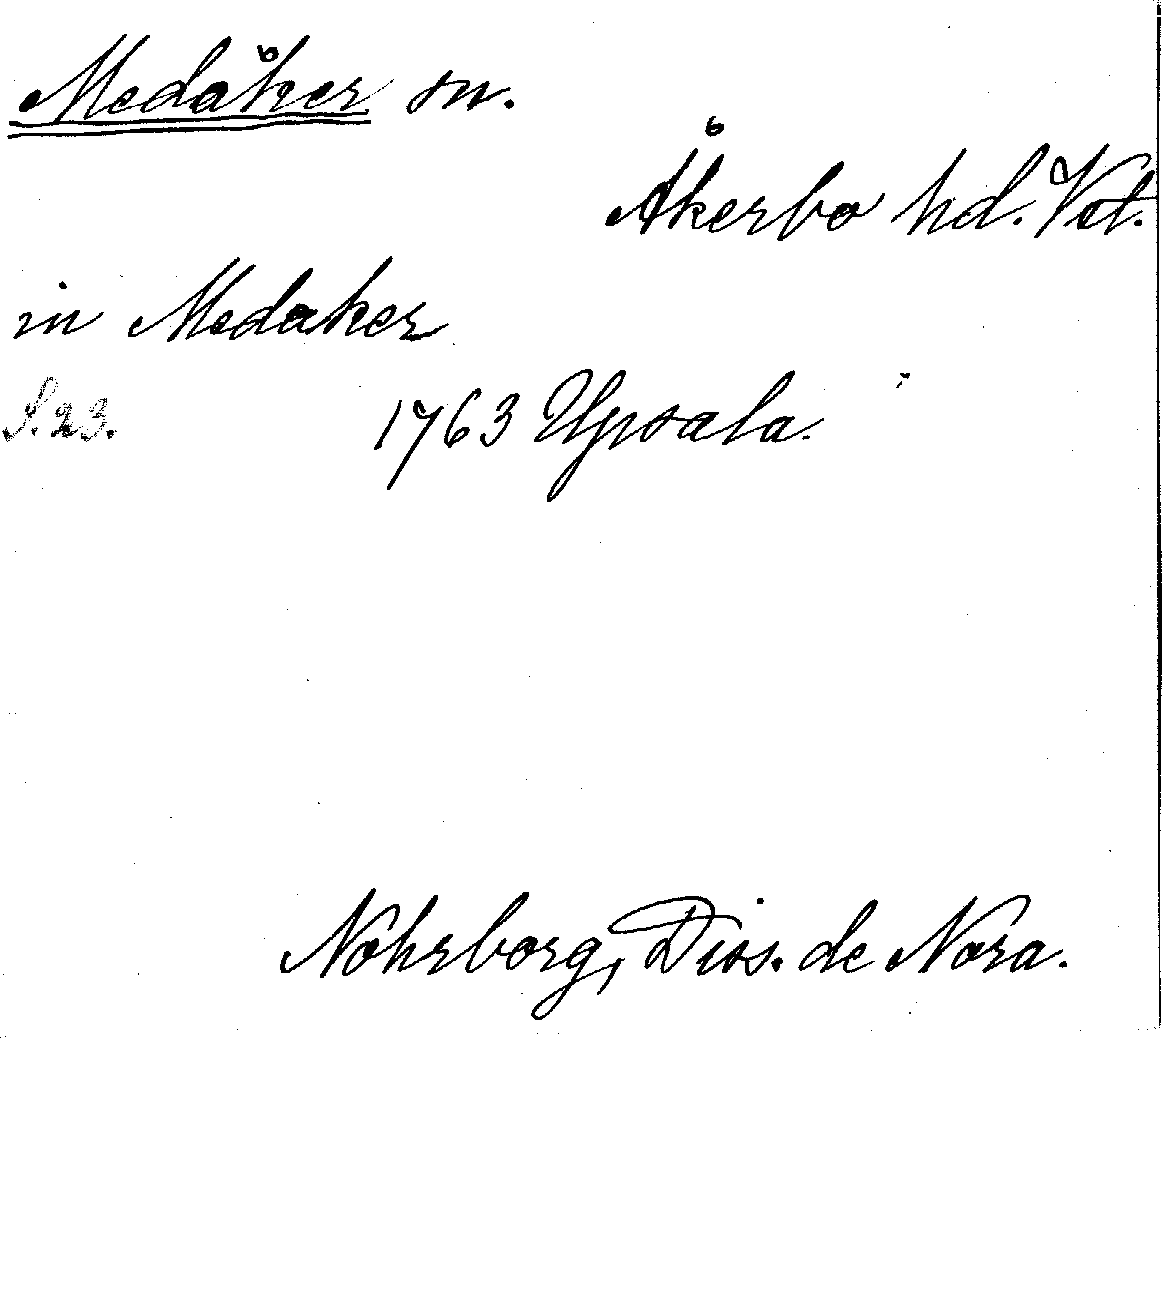 Medåker sn.
Åkerbo hd. Vst.
in Medaker
S. 23. 1763 Upsala.
Nohrborg, Diss. de Nora.